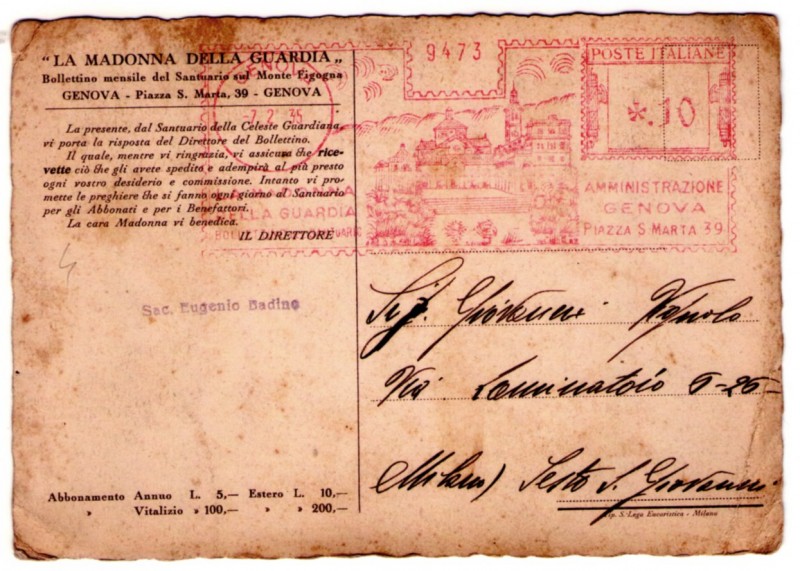 "LA MADONNA DELLA GUARDIA„
Bollettino mensile del Santuario sul Monte Figogna
GENOVA - Piazza S. Marta, 39 - GENOVA
La presente, dal Santuario della Celeste Guardiana,
vi porta la risposta del Direttore del Bollettino.
Il quale, mentre vi ringrazia, vi assicura che rice-
vette ciò che gli avete spedito e adempirà al più presto
ogni vostro desiderio e commissione. Intanto vi pro-
mette le preghiere che si fanno ogni giorno al Santuario
per gli Abbonati e per i Benefattori.
La cara Madonna vi benedica.
IL DIRETTORE
GENOVA
-7.2.35
MADONNA
DELLA GUARDIA
9473
POSTE ITALIANE
*.10
AMMINISTRAZIONE
GENOVA
PIAZZA S. MARTA 39
Sac. Eugenio Badino
Sig. Giovanni
Via Laminatoio 5-25-
Milano) Sesto S. Giovanni
Abbonamento Annuo L. 5,— Estero L. 10,—
» Vitalizio » 100,— » » 200,—
Tip. S. Lega Eucaristica - Milano